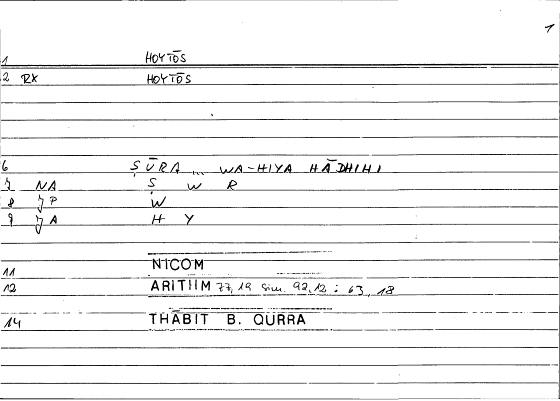 1
1 HOYTŌS
2 RX HOYTŌS
6 ṢŪRA ... WA-HIYA HĀDHIHI
7 NA Ṣ W R
8 JP W
9 JA H Y
11 NICOM
12 ARITIIM 77,19 sim. 92,12 : 63,18
14 THĀBIT B. QURRA